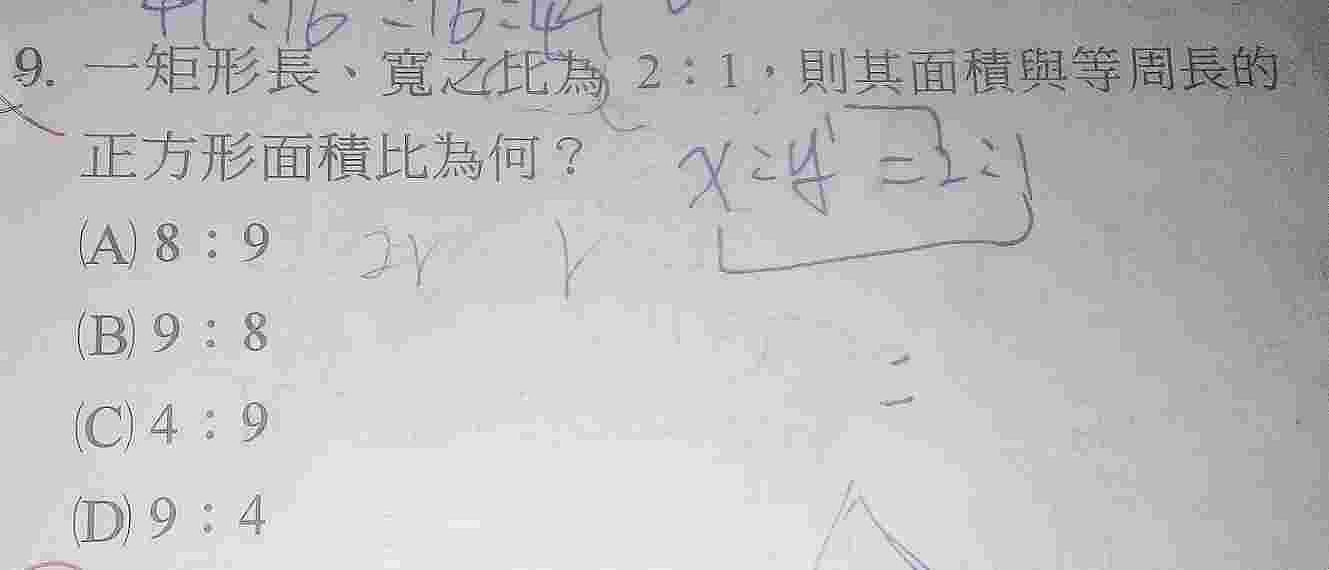 49:16=16:49
9. 一矩形長、寬之比為 2:1,則其面積與等周長的
正方形面積比為何?
x:y=2:1
(A) 8:9
2r r
(B) 9:8
=
(C) 4:9
(D) 9:4